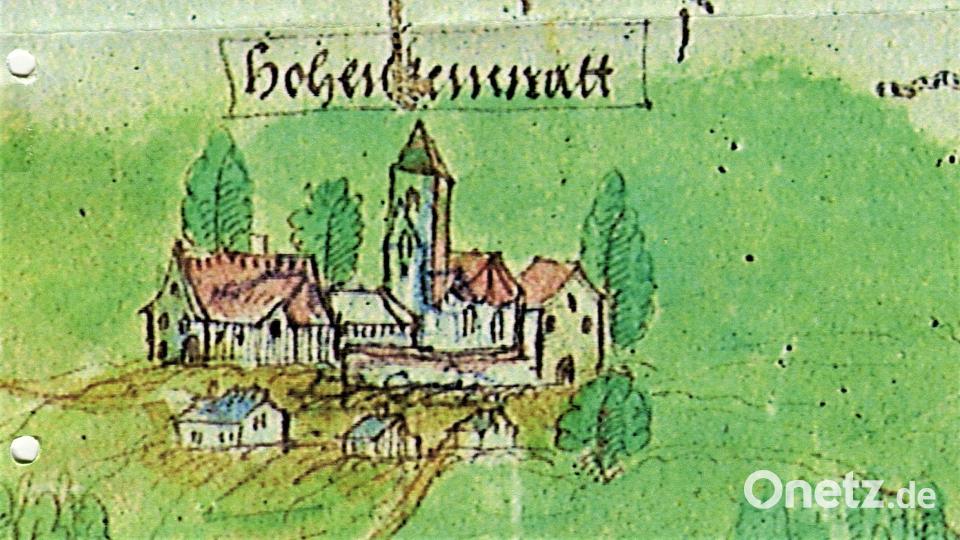 Hohenkemnatt
Onetz.de